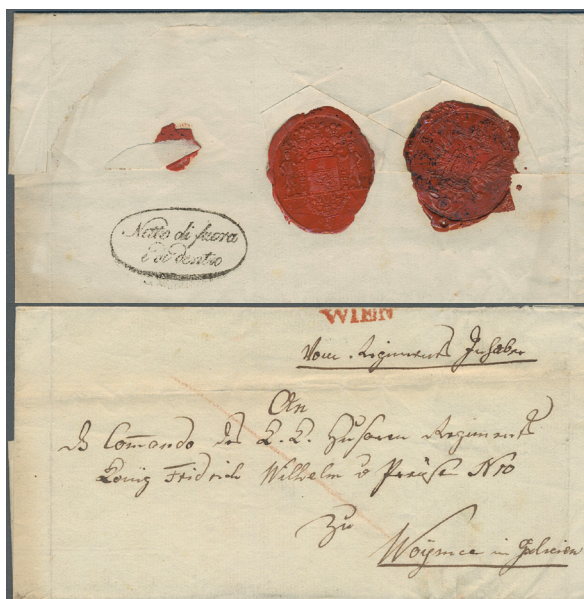 Netto di fuora
e di dentro
WIEN
Vom Regiments Inhaber
An
Commando des K. K. Husaren Regiments
König Fridrich Wilhelm v Preußen N 10
zu
in Galicien